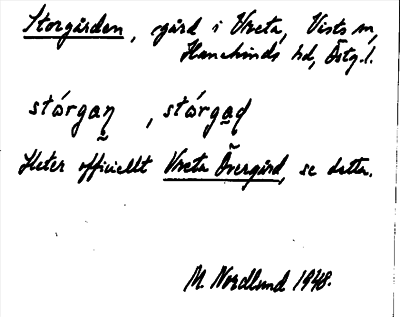 Storgården, gård i Vreta, Vists sn,
Hanekinds hd, Östg.l.
stórgan̰, stórga̰d
Heter officiellt Vreta Övergård, se detta.
M. Nordlund 1948.